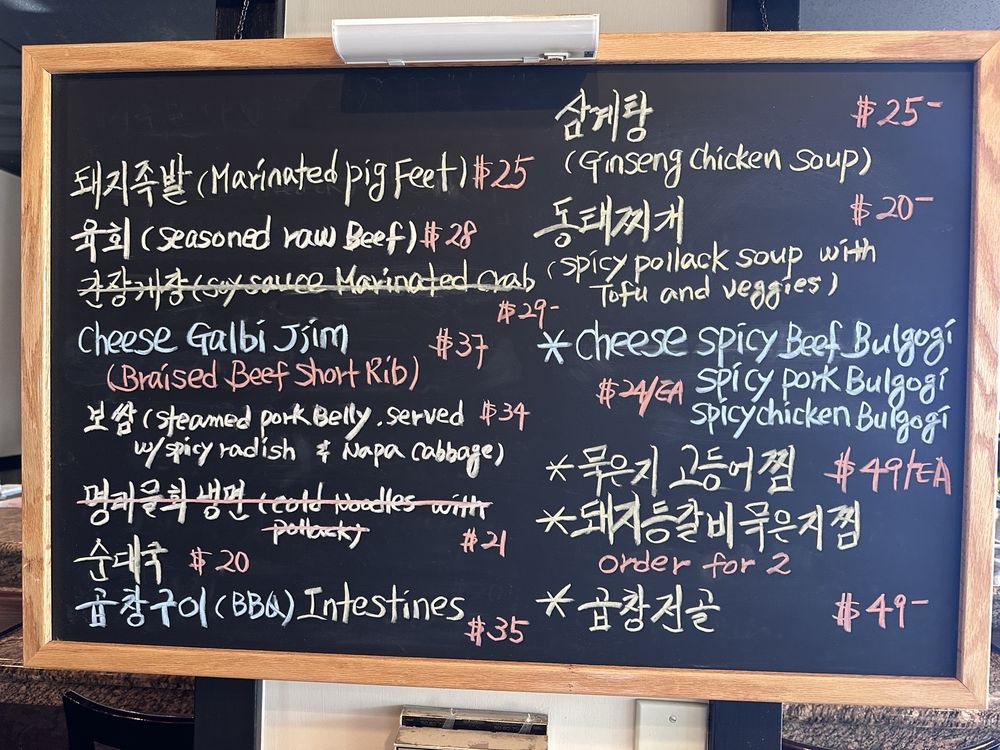 돼지족발 (Marinated pig Feet) $25
육회 (seasoned raw Beef) $28
간장게장 (soy sauce Marinated crab
$29-
Cheese Galbi Jjim $37
(Braised Beef short Rib)
보쌈 (steamed pork Belly, served $34
w/spicy radish & Napa cabbage)
명태물회 냉면 (cold Noodles with
pollack)
$21
순대국 $20
곱창구이 (BBQ) Intestines
$35
삼계탕 $25-
(Ginseng chicken soup)
동태찌개 $20-
(spicy pollack soup with
Tofu and veggies)
* Cheese spicy Beef Bulgogi
$24/EA spicy pork Bulgogi
spicy chicken Bulgogi
* 묵은지 고등어찜 $49/EA
* 돼지등갈비 묵은지찜
order for 2
* 곱창전골 $49-